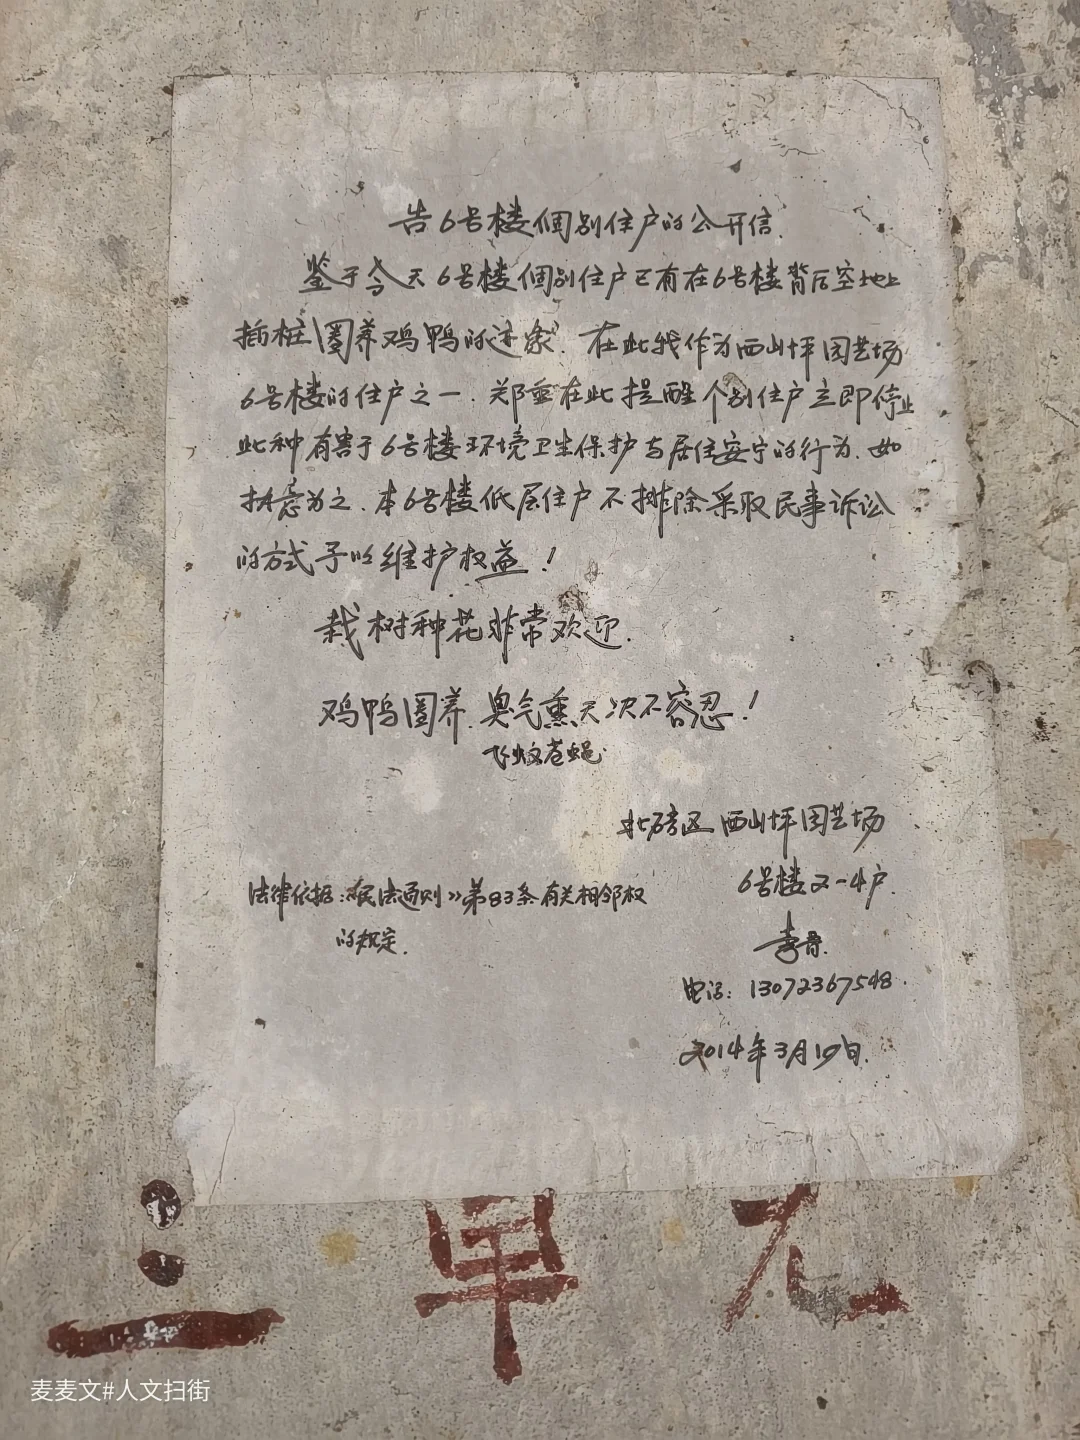 告6号楼個别住户的公开信.
鉴于今天6号楼個别住户已有在6号楼背后空地上
插桩圈养鸡鸭的迹象.在此我作为西山坪园艺场
6号楼的住户之一.郑重在此提醒个别住户立即停止
此种有害于6号楼环境卫生保护与居住安宁的行为.如
执意为之.本6号楼低层住户不排除采取民事诉讼
的方式予以维护权益!
栽树种花非常欢迎.
鸡鸭圈养.臭气熏天次不容忍!
飞蚊苍蝇
北碚区西山坪园艺场
6号楼2-4户.
法律依据:《民法通则》第83条有关相邻权
的规定.
李
电话:13072367548.
2014年3月19日.
三单元
麦麦文#人文扫街